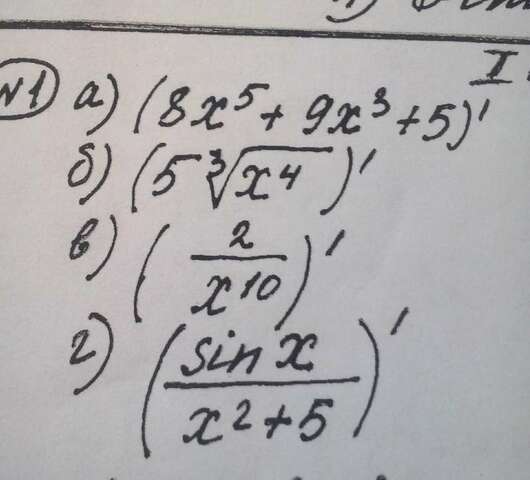 I
№1 а) (8x⁵ + 9x³ + 5)'
б) (5 ∛x⁴)'
в) (2/x¹⁰)'
г) (sin x / x² + 5)'